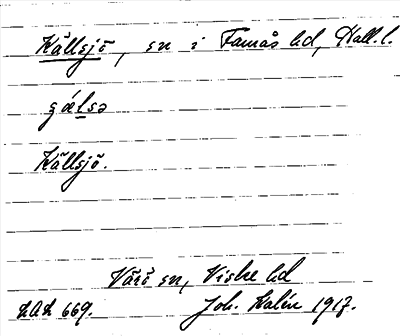 Källsjö, sn i Faurås hd, Hall. l.
gælsə
Källsjö.
Värö sn, Viske hd
LAL 669. Joh. Kalén 1917.